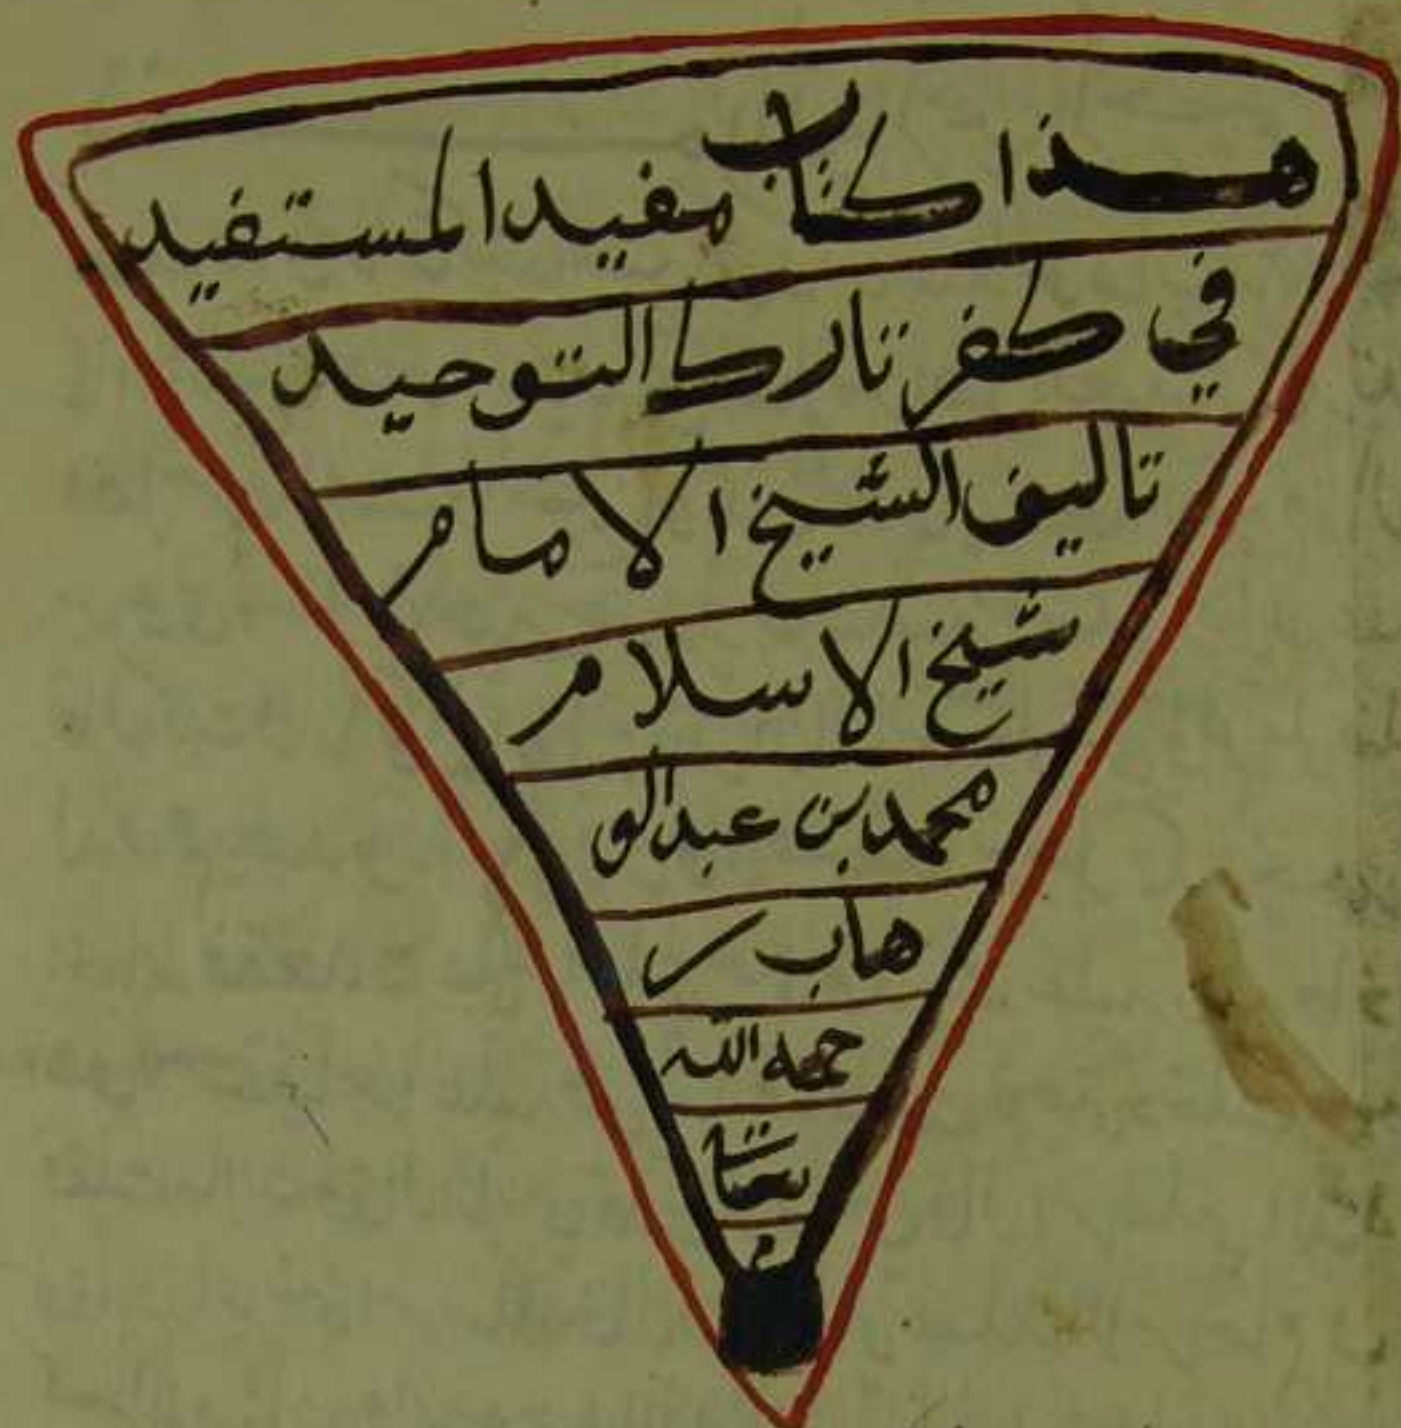 هذا كتاب مفيد المستفيد
في كفر تارك التوحيد
تاليف الشيخ الامام
شيخ الاسلام
محمد بن عبدالو
هاب ر
حمه الله
م